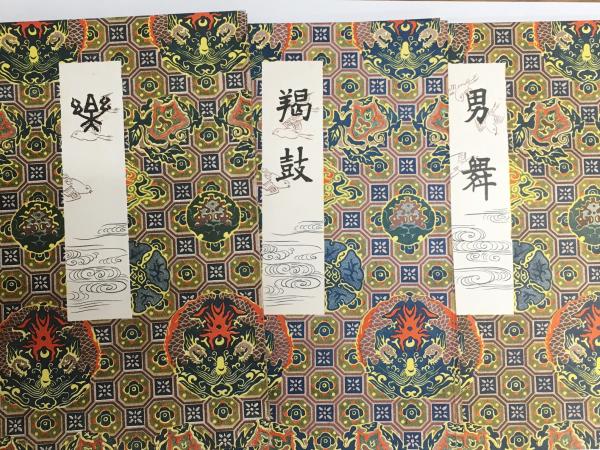 樂
羯鼓
男舞